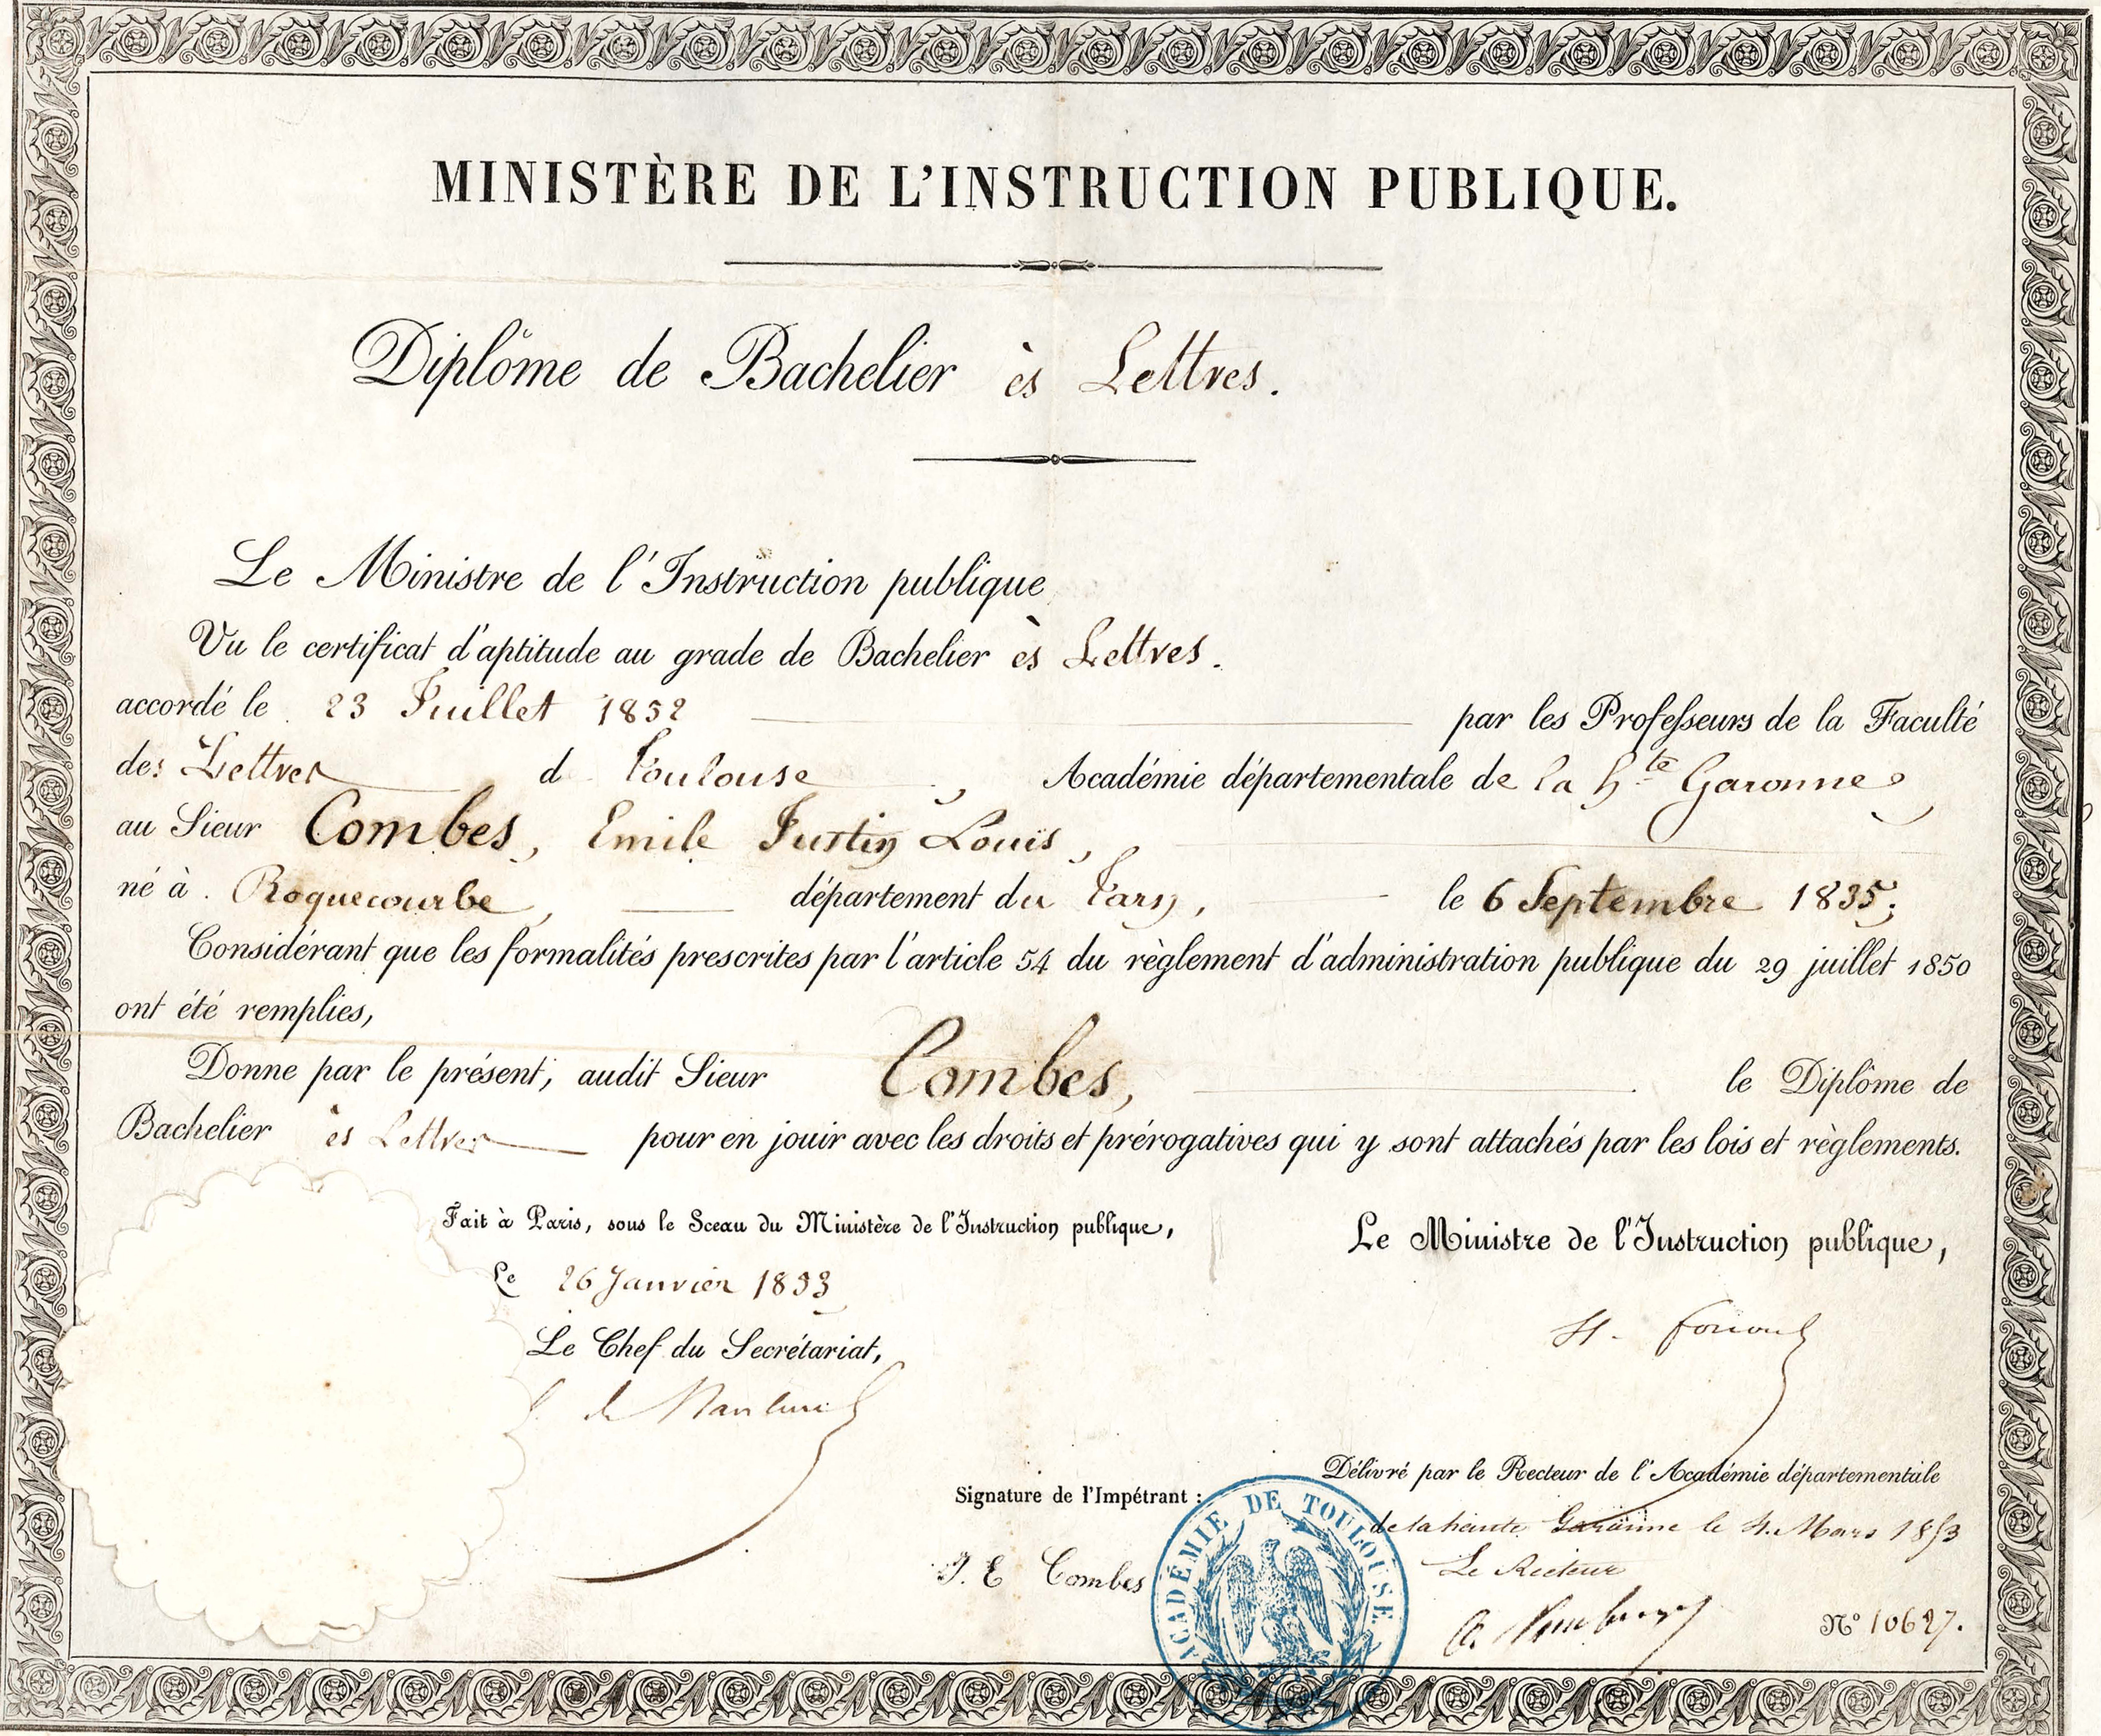 MINISTÈRE DE L'INSTRUCTION PUBLIQUE.
Diplôme de Bachelier ès Lettres.
Le Ministre de l'Instruction publique
Vu le certificat d'aptitude au grade de Bachelier ès Lettres.
accordé le 23 Juillet 1852 par les Professeurs de la Faculté
des Lettres d Toulouse, Académie départementale de la Hte Garonne,
au Sieur Combes, Emile Justin Louis,
né à Roquecourbe, département du Tarn, le 6 Septembre 1835;
Considérant que les formalités prescrites par l'article 54 du règlement d'administration publique du 29 juillet 1850
ont été remplies,
Donne par le présent, audit Sieur Combes, le Diplôme de
Bachelier ès Lettres pour en jouir avec les droits et prérogatives qui y sont attachés par les lois et règlements.
Fait à Paris, sous le Sceau du Ministère de l'Instruction publique,
Le 26 Janvier 1853
Le Chef du Secrétariat,
Le Ministre de l'Instruction publique,
H. Fortoul
Délivré par le Recteur de l'Académie départementale
de la haute Garonne le 4 Mars 1853
Le Recteur
Signature de l'Impétrant :
J. E Combes
ACADÉMIE DE TOULOUSE
N° 10627.